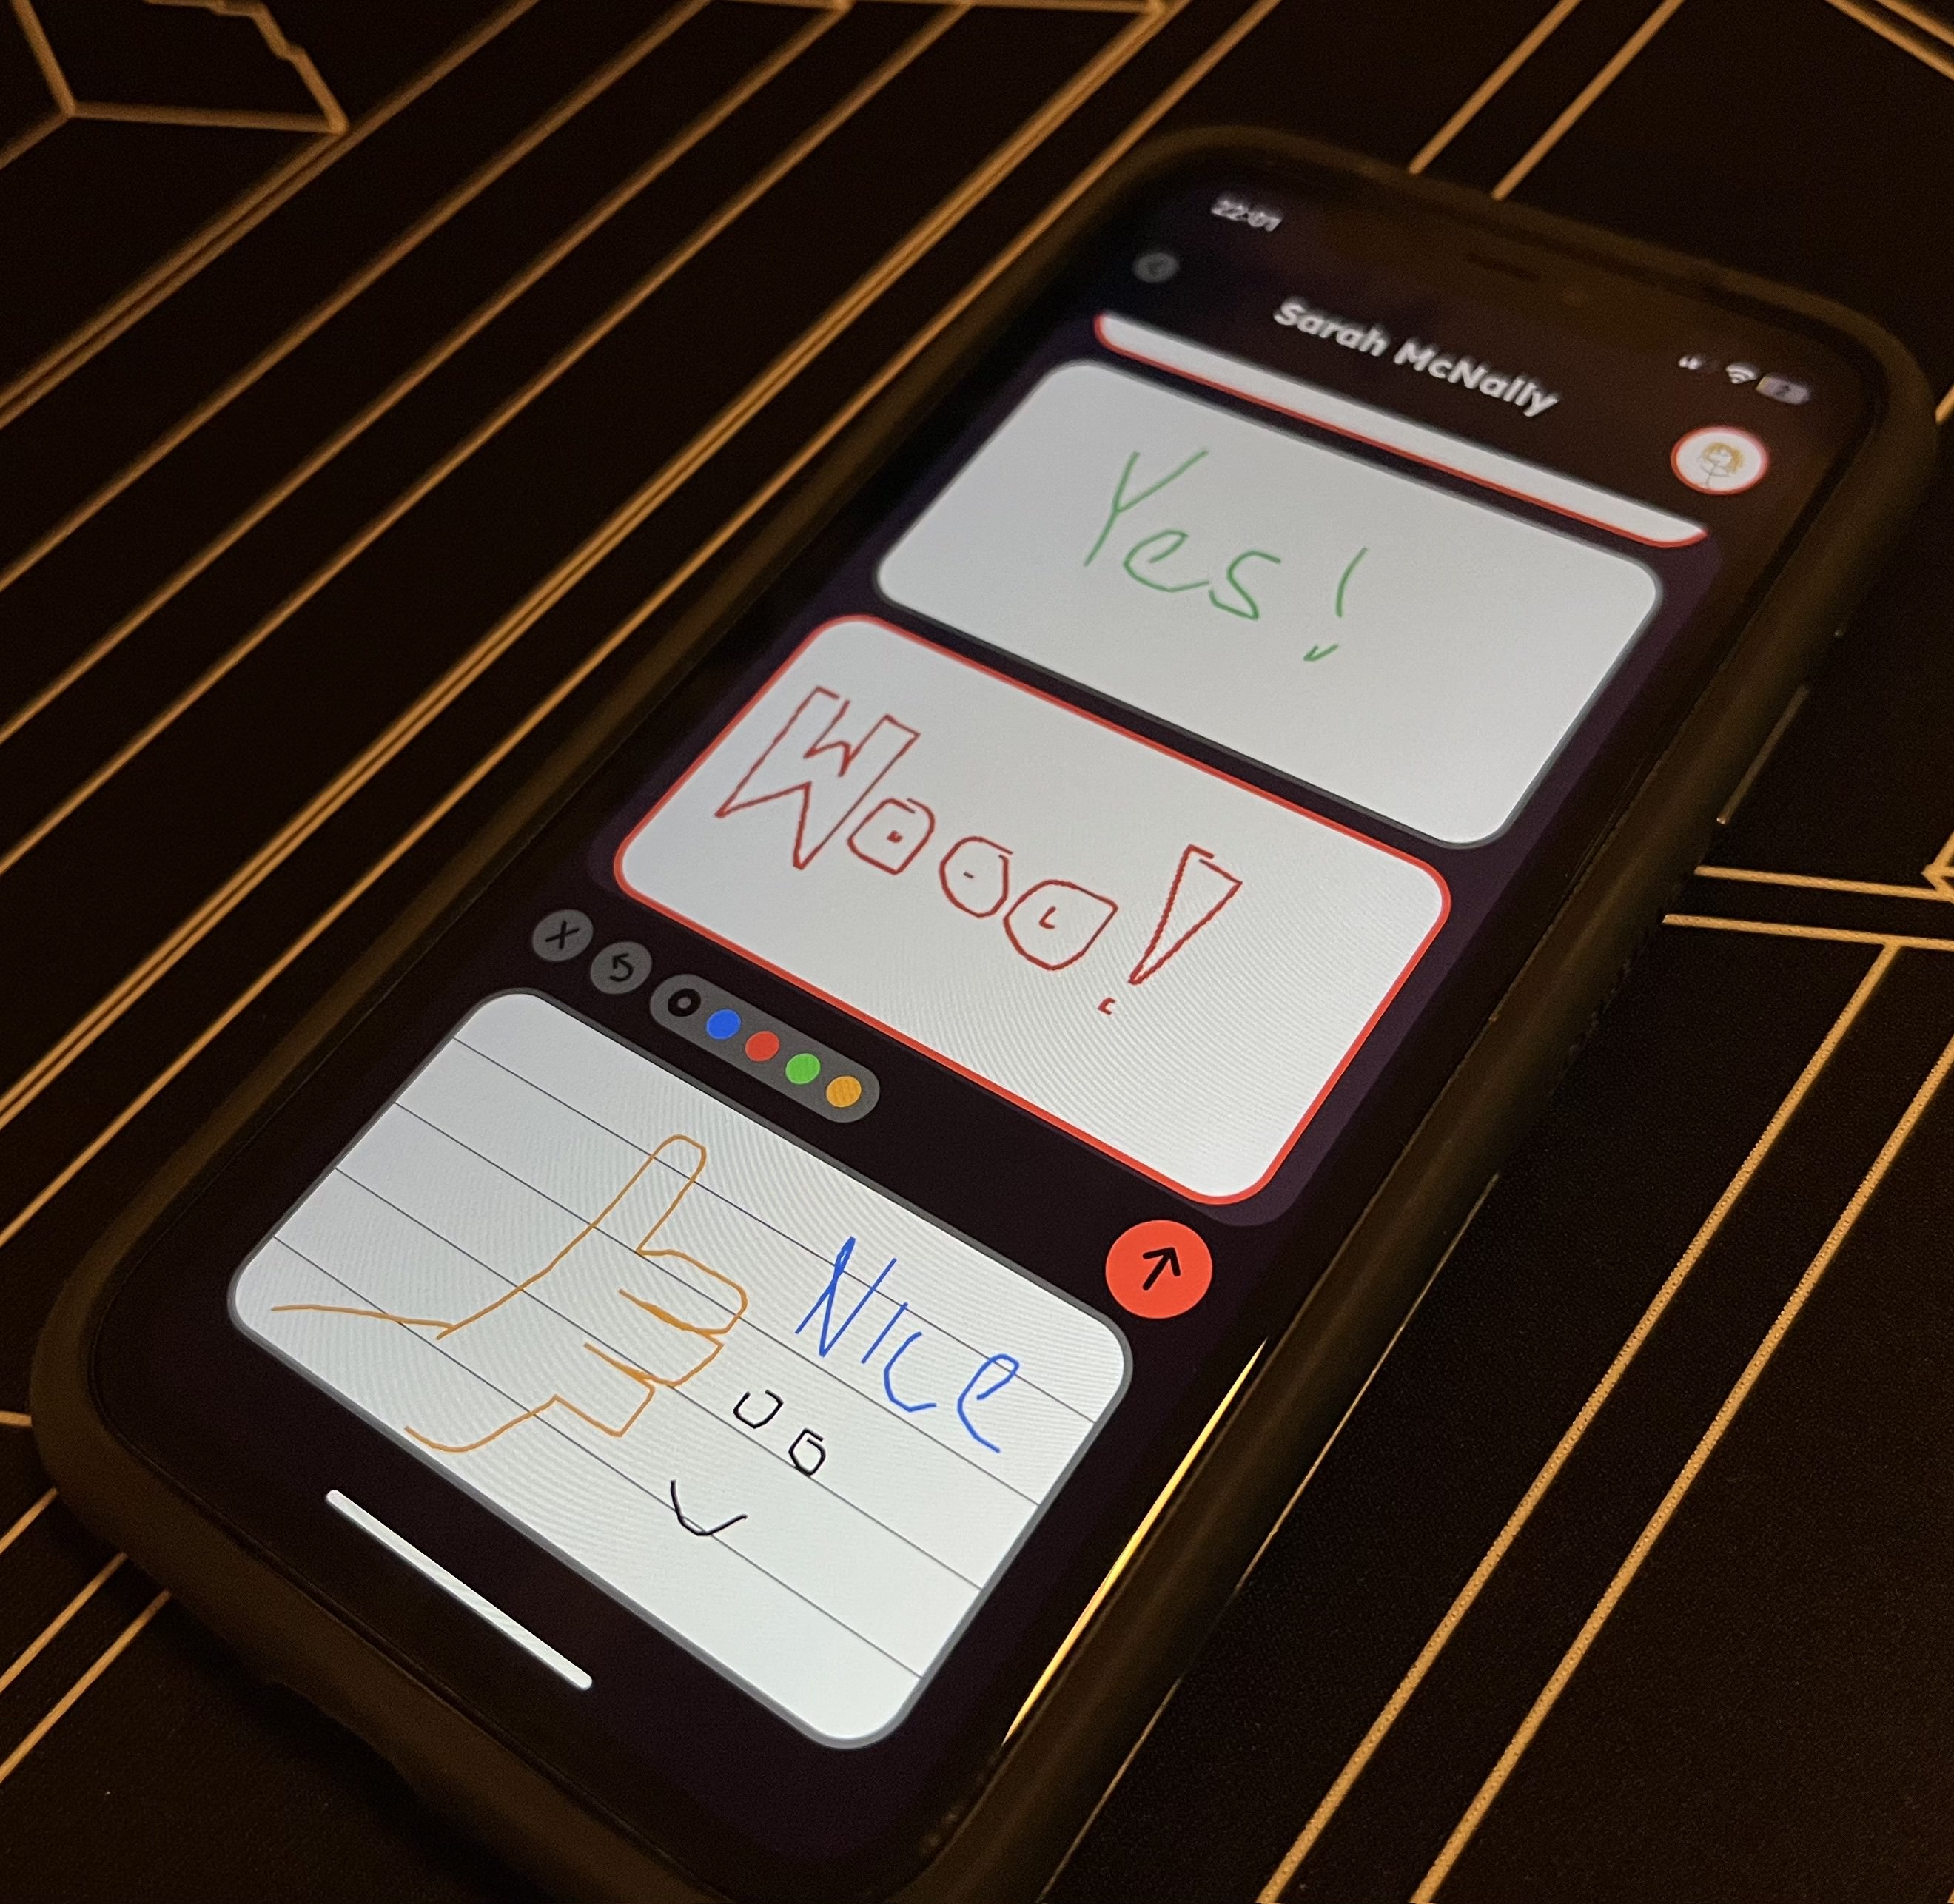 22:01
Sarah McNally
Yes!
Wooo!
Nice